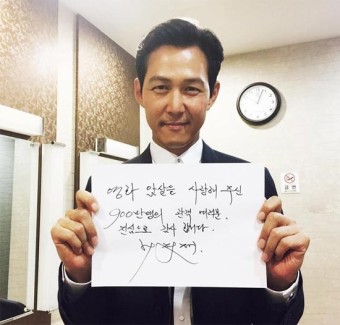 영화 암살을 사랑해 주신
900만명의 관객 여러분.
진심으로 감사 합니다.
금연